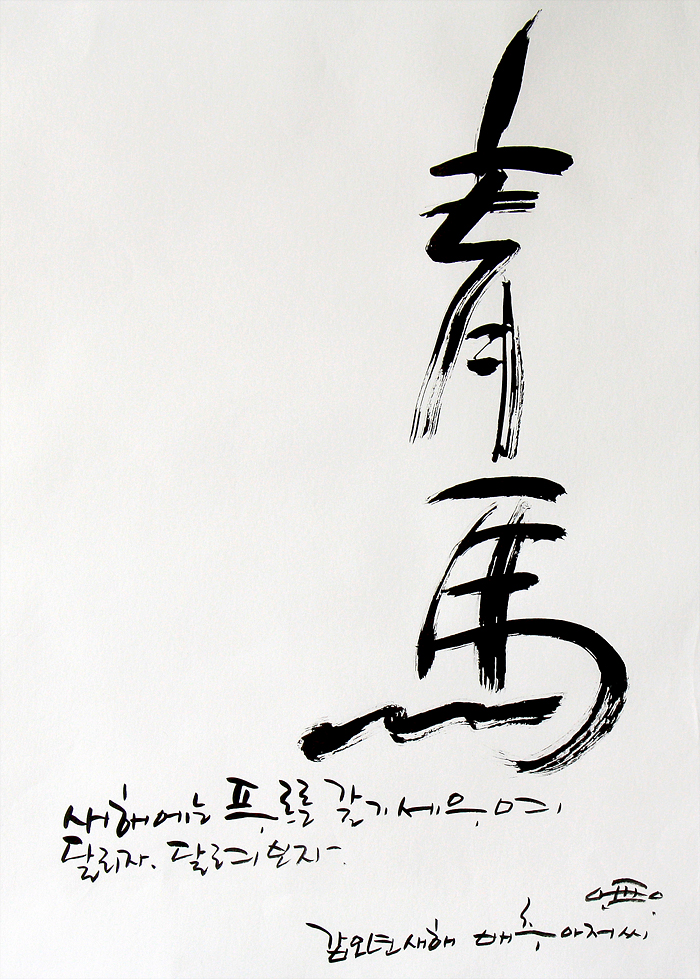 青馬
새해에는 푸르른 갈기세우며
달리자. 달려보자~.
갑오년새해 배추아저씨